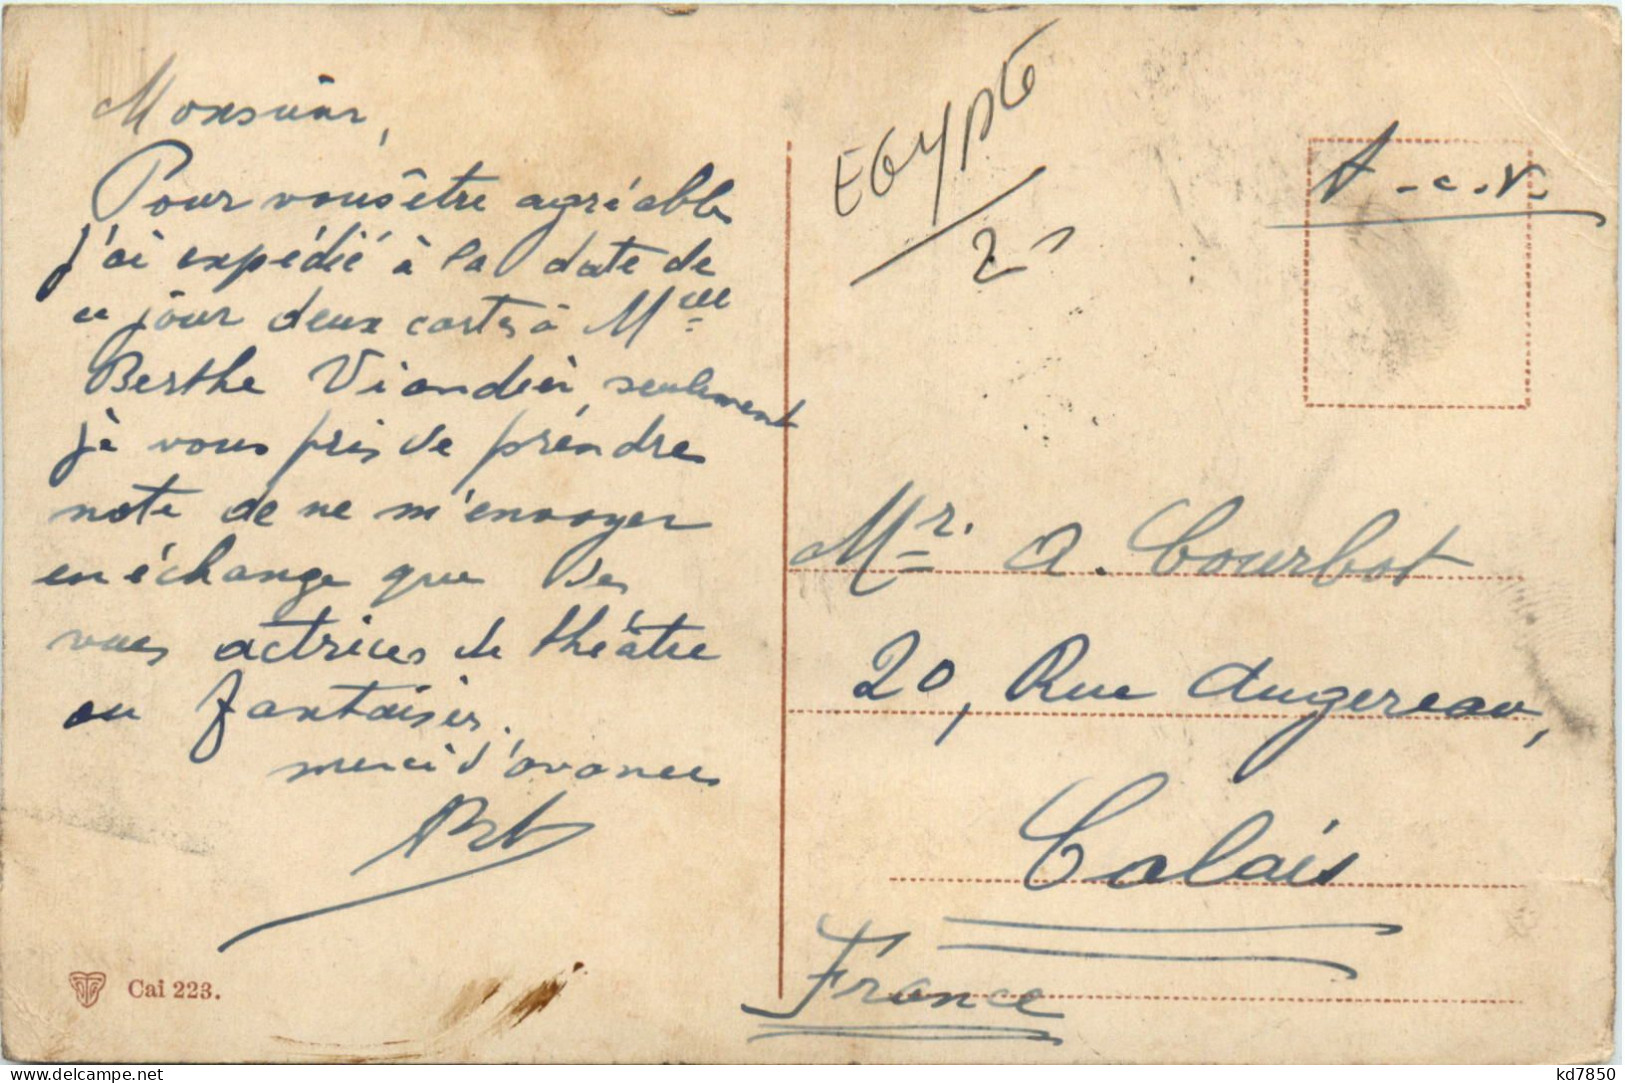 Monsieur,
Pour vous être agréable
j'ai expédié à la date de
ce jour deux cartes à Mlle
Berthe Viandier, seulement
je vous pris de préndre
note de ne m'envoyer
en échange que des
vues actrices de théâtre
ou fantaisies.
merci d'avances
Cai 223.
EGYPTE
A-c.v.
Mr. A. Courbot
20, Rue Augereau,
Calais
France
kd7850